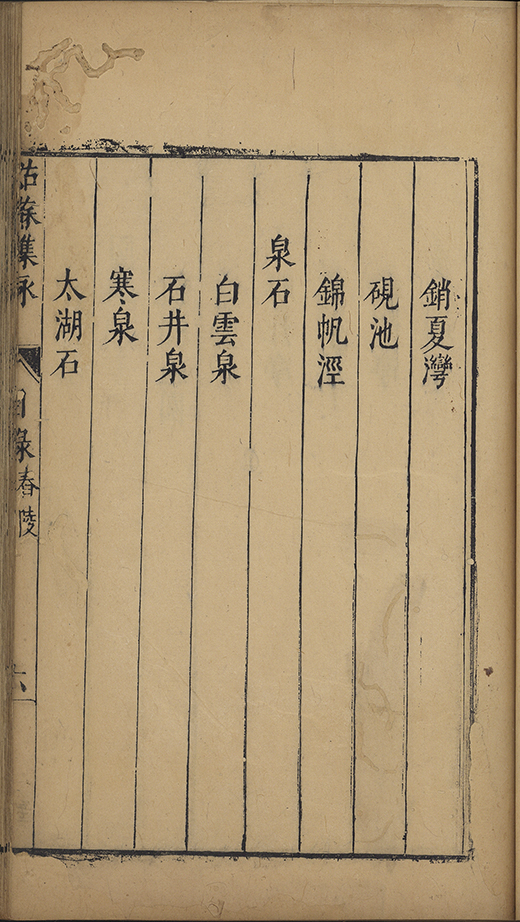 銷夏灣
硯池
錦帆涇
泉石
白雲泉
石井泉
寒泉
太湖石
姑蘇雜詠
目錄 春陵
六